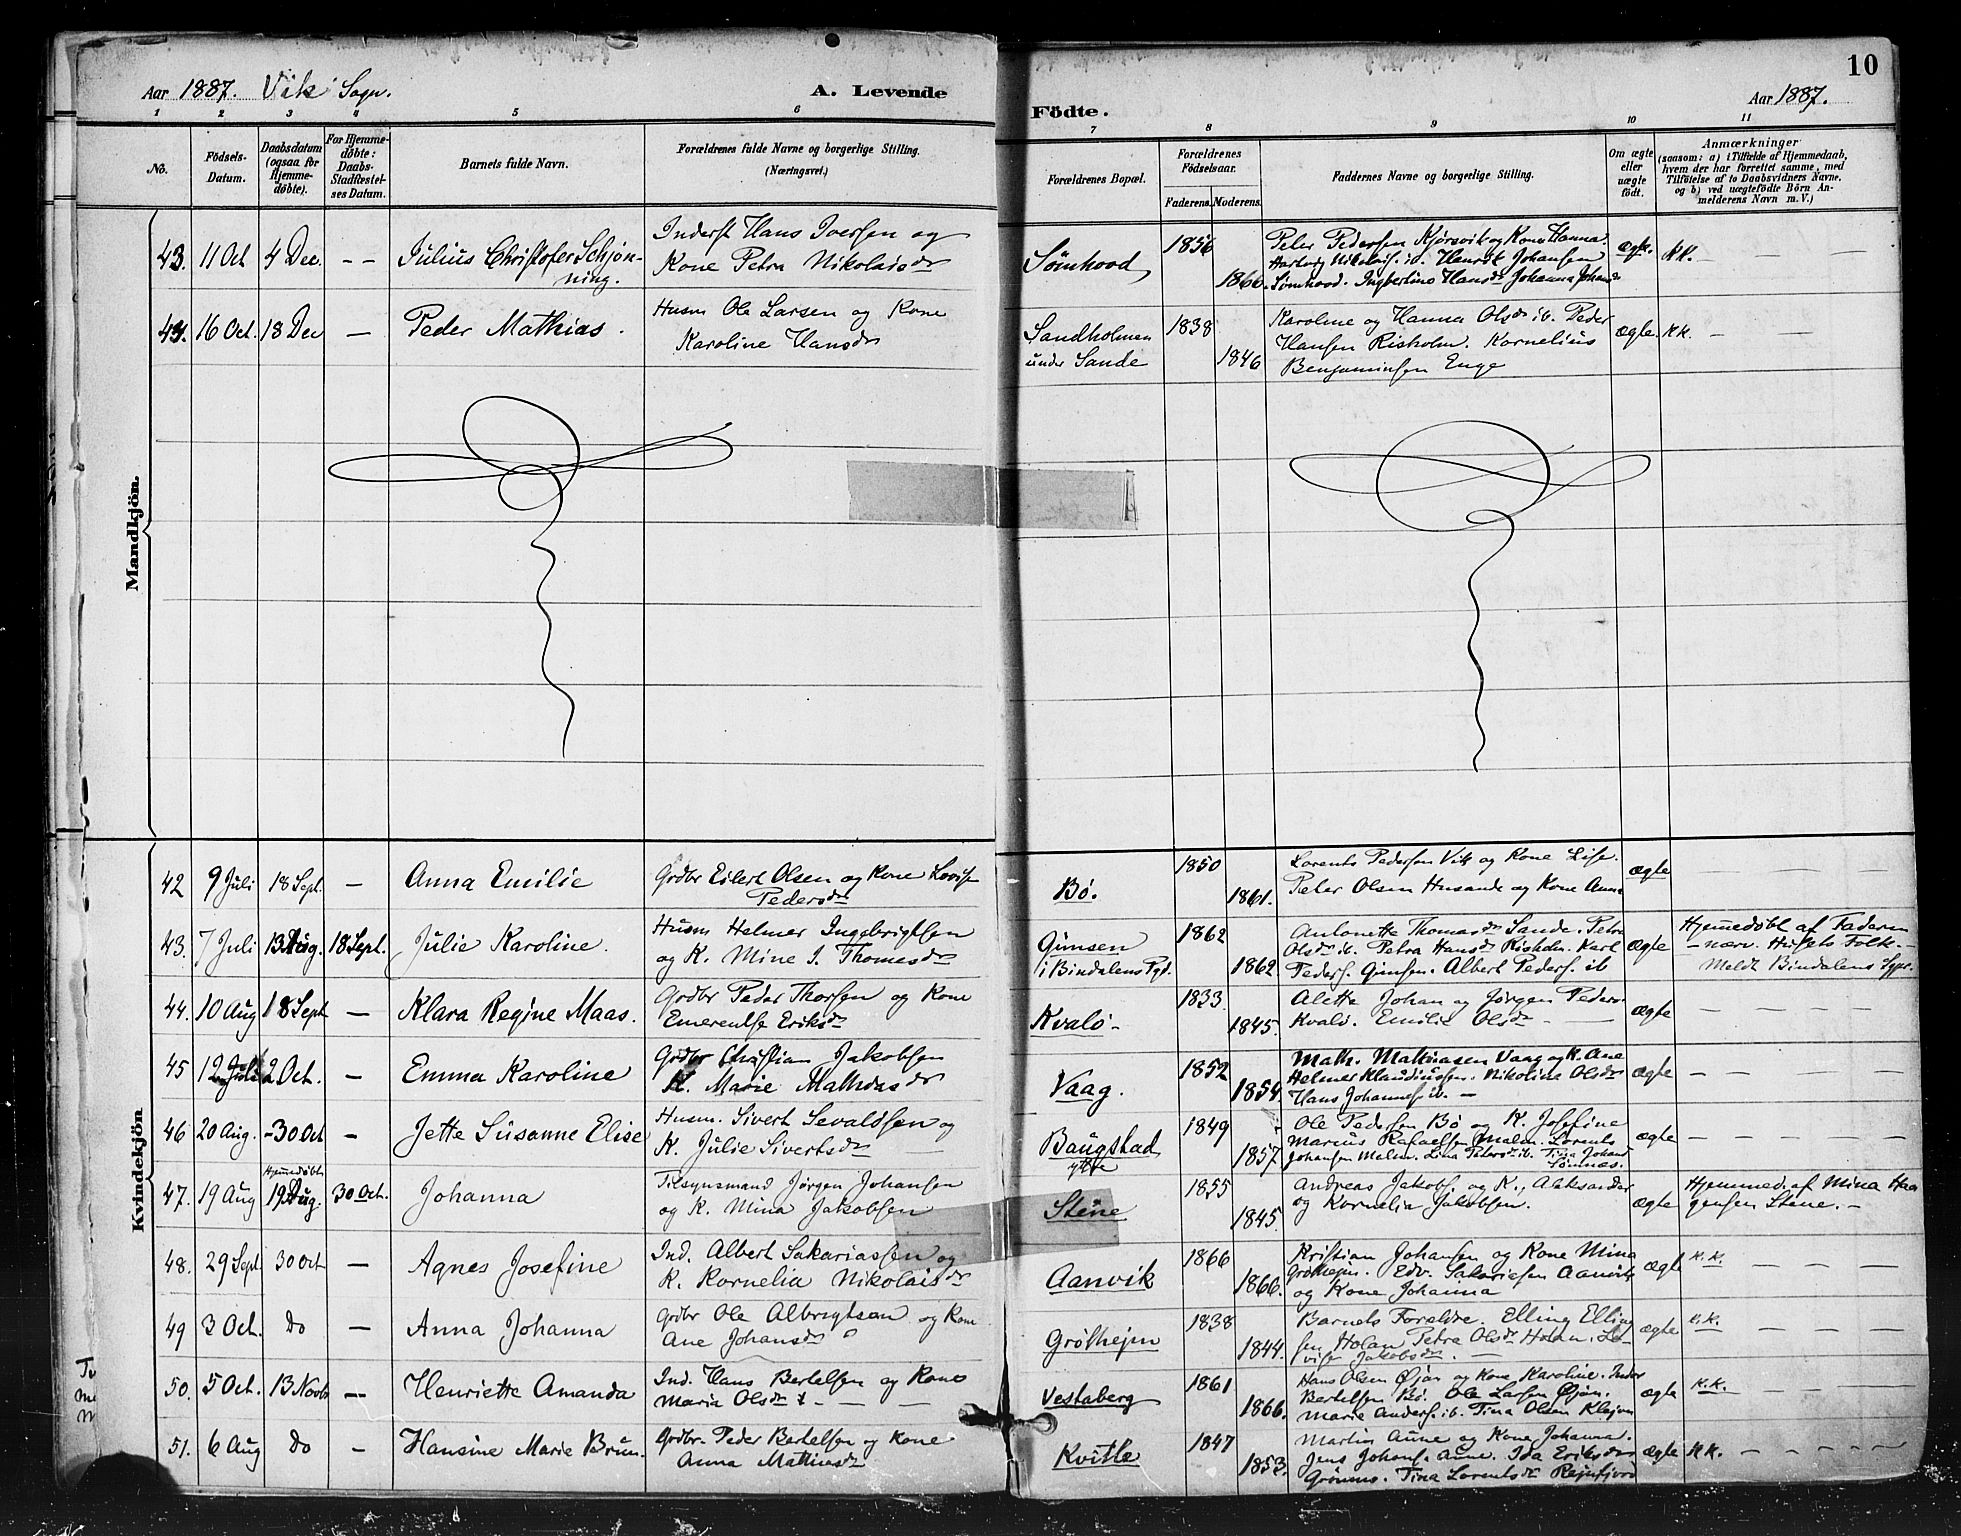 Aar 1887. Vik Sogn.
A. Levende
Födte.
Aar 1887.
10
1 2 3 4 5 6 7 8 9 10 11
No.
Födsels-
Datum.
Daabsdatum
(ogsaa for
Hjemme-
døbte).
For Hjemme-
døbte:
Daabs-
Stadfæstel-
ses Datum.
Barnets fulde Navn.
Forældrenes fulde Navne og borgerlige Stilling.
(Næringsvei.)
Forældrenes Bopæl.
Forældrenes
Födselsaar.
Faderens. Moderens.
Faddernes Navne og borgerlige Stilling.
Om ægte
eller
uægte
födt.
Anmærkninger
(saasom: a) i Tilfælde af Hjemmedaab,
hvem der har forrettet samme, med
Tilföielse af to Daabsvidners Navne,
og b) ved uægtefödte Börn An-
melderens Navn m. V.)
Mandkjön.
43. 11 Oct 4 Dec. – – Julius Christofer Schjøn-
ning.
Inderst Hans Iversen og
Kone Petra Nikolaisdr
Sømhood
1856
1866.
Peter Pedersen Kjørsvik og Kone Hanna.
Hartvig Nikolais. ib. Henrik Johansen
Sømhood. Ingbertine Hansdr Johanna Johansdr
ægte. KK. – – –
44. 16 Oct. 18 Dec – Peder Mathias.
Husm Ole Larsen og Kone
Karoline Hansdr
Sandholmen
under Sande
1838
1846
Karoline og Hanna Olsdr ib. Peder
Hansen Risholm. Kornelius
Benjaminsen Enge
ægte. KK. – – –
Kvindekjön
42 9 Juli 18 Sept. – Anna Emilie
Grdbr Eilert Olsen og Kone Lovise
Pedersdr
Bø.
1850
1861.
Lorents Pedersen Vik og Kone Lise.
Peter Olsen Husande og Kone Anna
ægte – – – –
43. 7 Juli 13 Aug. 18 Sept. Julie Karoline.
Husm Helmer Ingebrigtsen
og K. Mine J. Thomesdr
Gimsen
i Bindalens Pgd.
1862
1862
Antonette Thomasdr Sande. Petra
Olsdr ib. Petra Hansdr Risholm. Karl
Peders. Gimsen. Albert Peders. ib
ægte
Hjemmedøbt af Faderen
– nærv. Husets Folk. –
Meldt Bindalens Sgpr.
44. 10 Aug 18 Sept – Klara Regine Maas.
Grdbr Peder Thorsen og Kone
Emerentse Eriksdr
Kvalø –
1833
1845.
Aletta Johan og Jørgen Peders.
Kvalø. Emilie Olsdr – –
ægte – – – –
45 12 Juli 2 Oct. – Emma Karoline
Grdbr Christian Jakobsen
K. Marie Mathiasdr
Vaag.
1852
1854.
Math. Mathiasen Vaag og K. Ane
Helmer Klaudiussen. Nikolina Olsdr
Hans Johannes. ib. –
ægte – – – –
46 20 Aug. – 30 Oct – Jette Susanne Elise
Husm. Sivert Sevaldsen og
K. Julie Sivertsdr
Baugstad
ytre
1849
1857.
Ole Pedersen Bø og K. Josefine
Marcus Rafaelsen Malm. Lorents
Johansen Malm. Lina Petersdr ib. Tina Johansdr
Sømnæs.
ægte – – – –
47. 19 Aug Hjemmedøbt 19 Aug. 30 Oct. Johanna
Tilsynsmand Jørgen Johansen
og K. Mina Jakobsen
Stene
1855
1845.
Andreas Jakobs. og K., Aleksander
og Kornelia Jakobsen.
ægte
Hjemmed. af Mina Haa
gensen Stene. –
48. 29 Sept. 30 Oct – Agnes Josefine
Ind. Albert Sakariassen og
K. Kornelia Nikolaisdr
Aanvik
1866
1866.
Kristian Johansen og Kone Mina
Grøthejm. Edv. Sakariesen Aanvik
og Kone Johanna
ægte K.K. – – –
49 3 Oct. do – Anna Johanna
Grdbr Ole Albrigtsen og Kone
Ane Johansdr
Grøthejm
1838
1844.
Barnets Forældre. Elling Elling
sen Holan Petra Olsdr Holan. Lo-
vise Jakobsdr. –
ægte K.K. – – –
50. 5 Oct. 13 Novbr – Henriette Amanda
Ind. Hans Bertelsen og Kone
Maria Olsdr – –
Vestaberg
1861
1866.
Hans Olsen Øjan og Kone Karoline. Peder
Bertelsen Bø. Ole Larsen Øjan.
Marie Anders. ib. Tina Olsen Klejven
ægte K.K. – – –
51. 6 Aug do – Hansine Marie Brun.
Grdbr. Peder Bertelsen og Kone
Anna Mathiasdr
Kvitle
1847
1853.
Martin Aune og Kone Johanna.
Jens Johans. Aune. Ida Eriksdr
Grønmo. Tina Lorentsdr Rejnfjord
ægte KK. – – – –